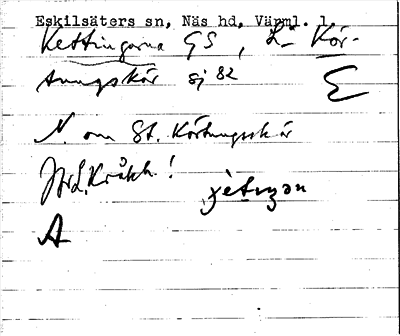 Eskilsäters sn, Näs hd, Värml. l.
Kettingarna GS, L- Kör-
tungskär sj 82
N. om St. Körtungskär
Jfr L. Kråkh!
A